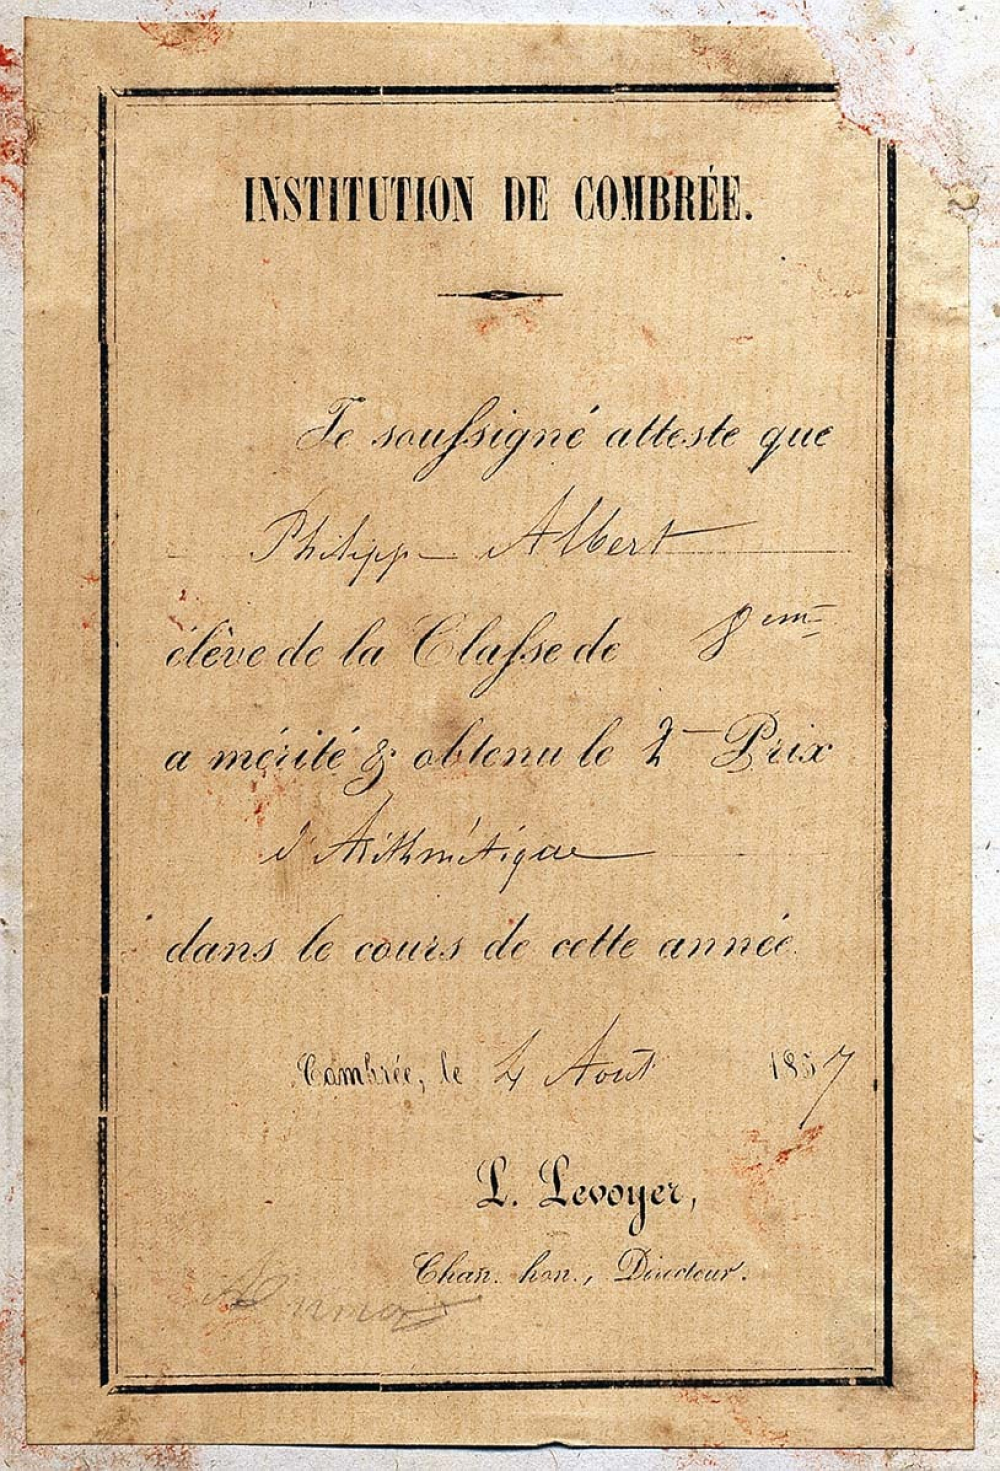 INSTITUTION DE COMBRÉE.
Je soussigné atteste que
Philippe Albert
élève de la Classe de 8eme
a mérité & obtenu le 2 Prix
d'Arithmétique
dans le cours de cette année.
Combrée, le 4 Août 1857
L. Levoyer,
Chan. hon., Directeur.